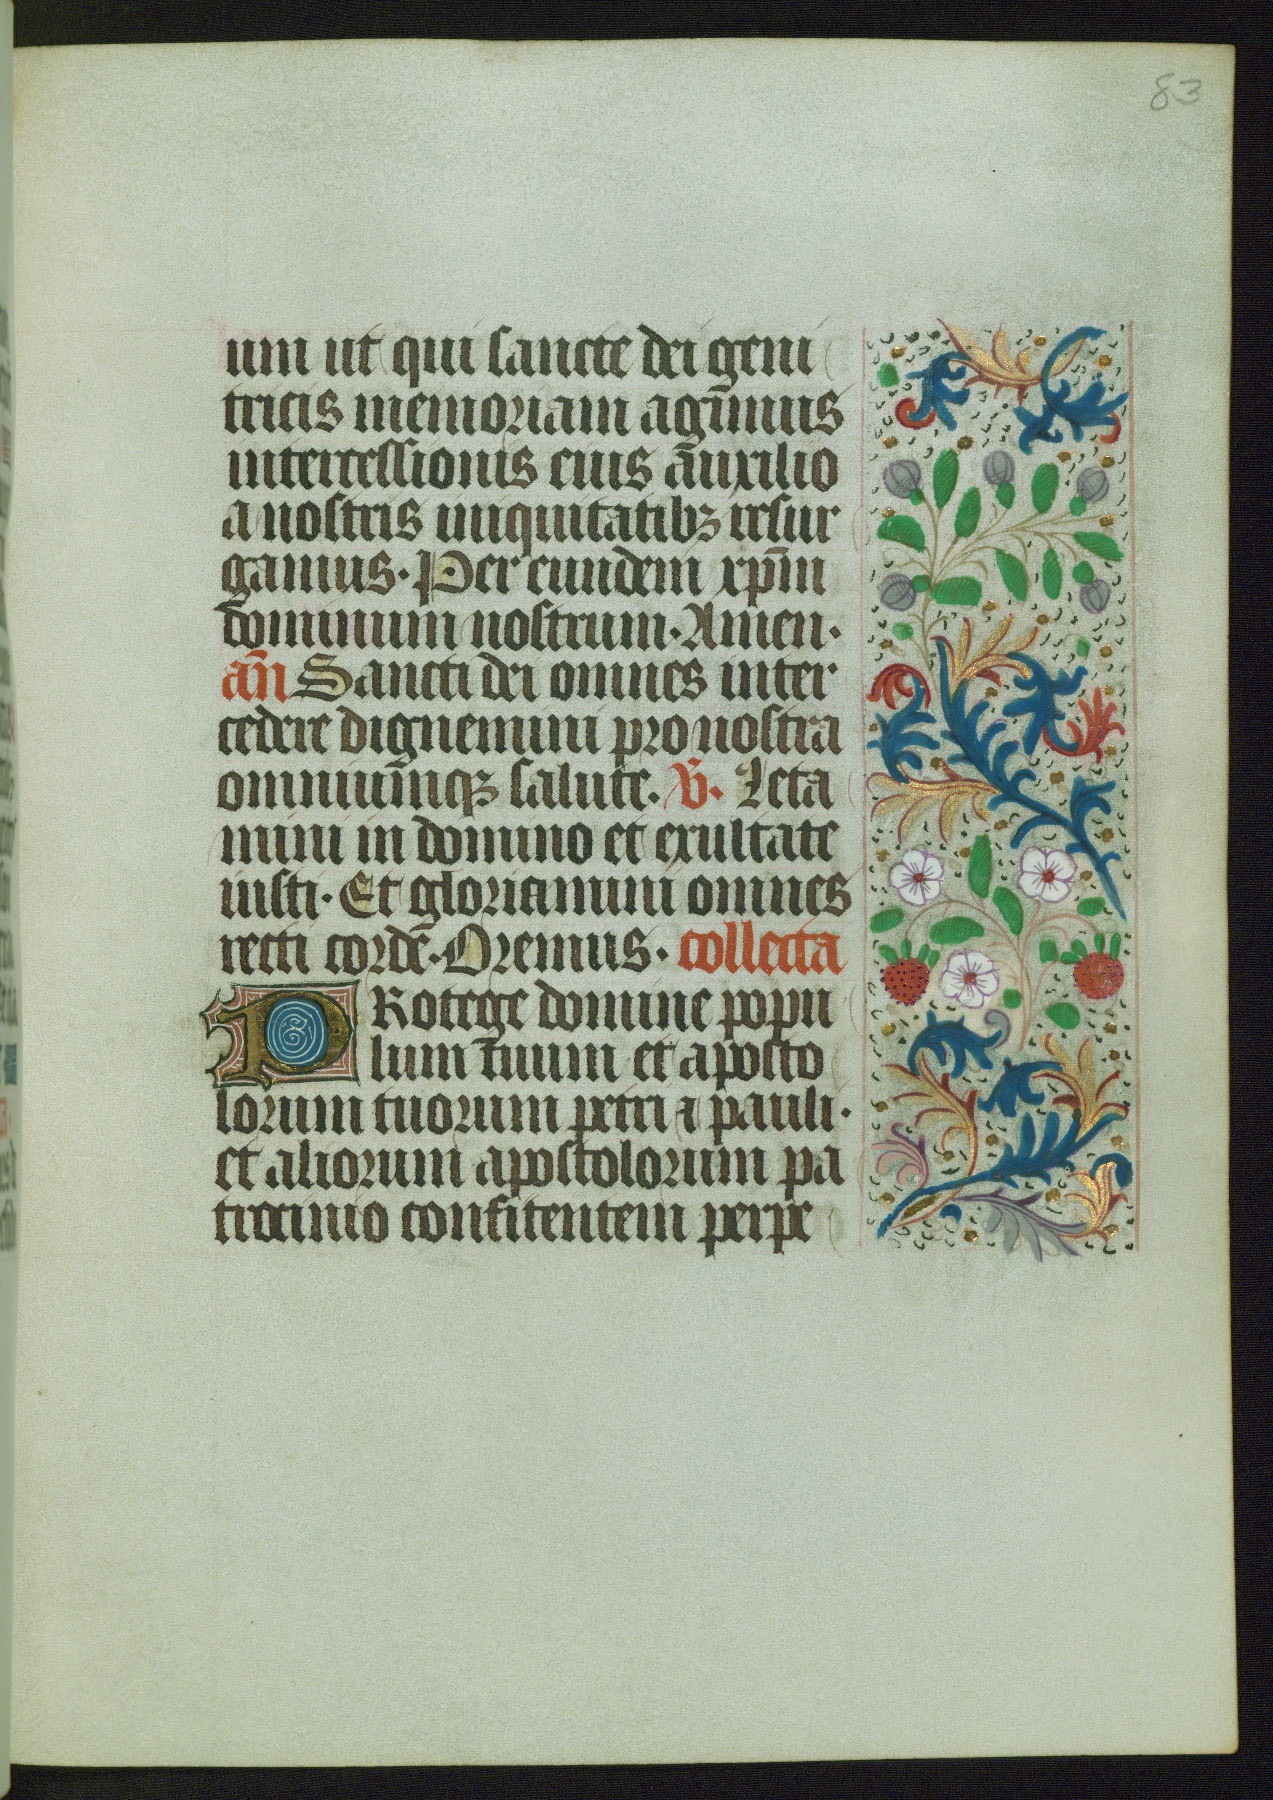 83
um ut qui sancte dei geni
tricis memoriam agim̄us
intercessionis eius āuxilio
a nostris iniquitatibꝫ resur
gamus. Per eundem xp̄m
dominum nostrum. Amen.
an̄ Sancti dei omnes inter
cedere dignemini pro nostra
omniūmqꝫ salute. ℣. Leta
mini in domino et exultate
iusti. Et gloriamini omnes
recti cordē. Oremus. collecta
Rotege domine popu
lum tuum et aposto
lorum tuorum petri ⁊ pauli.
et aliorum apostolorum pa
trocinio confitentem perpe